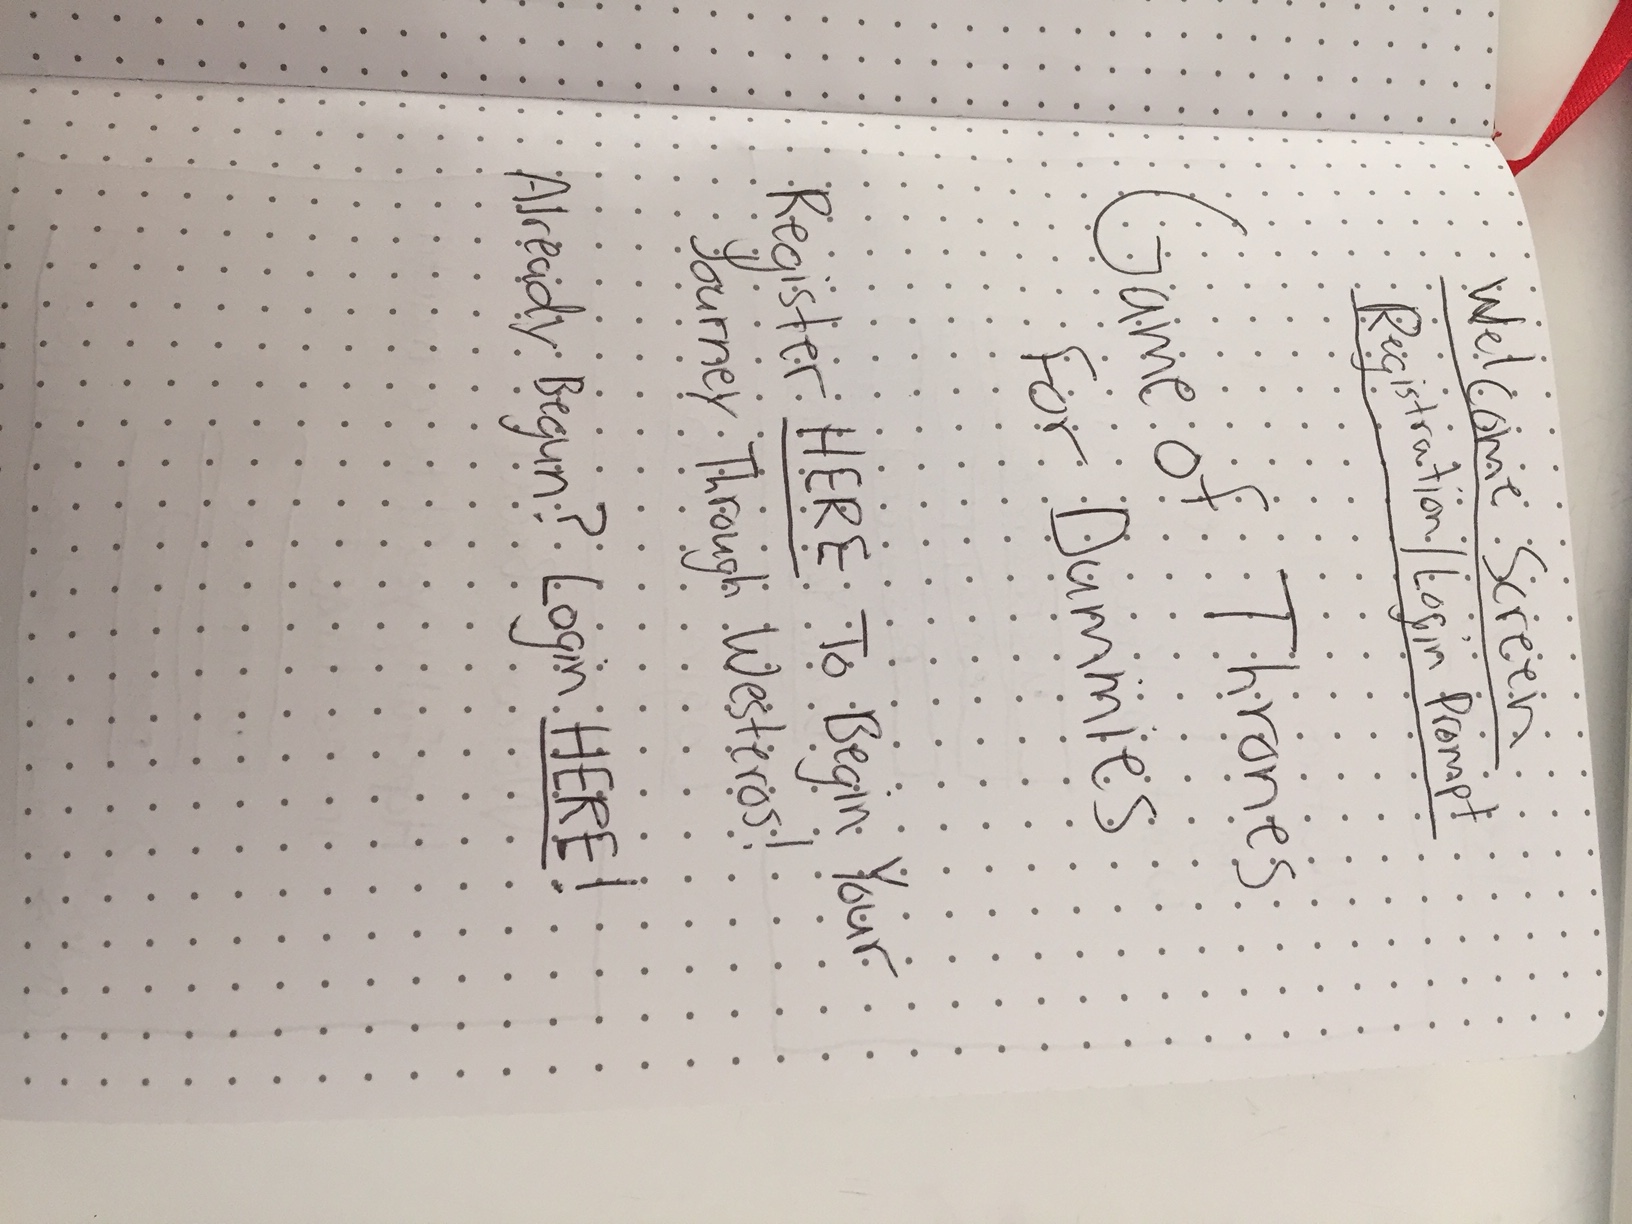 Welcome Screen
Registration/Login Prompt
Game of Thrones
For Dummies
Register HERE To Begin Your
Journey Through Westeros!
Already Begun? Login HERE!